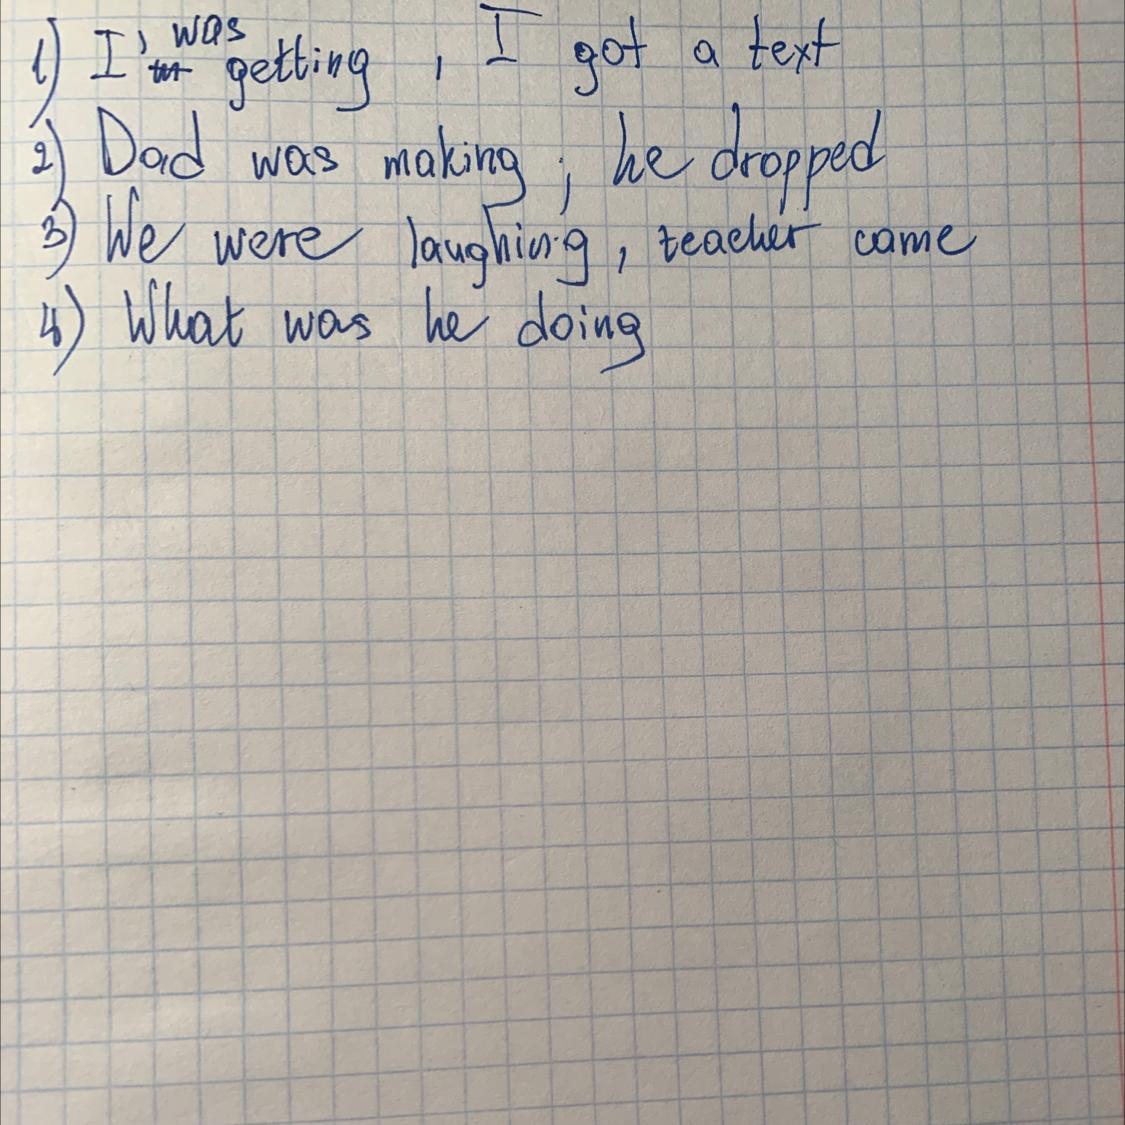 1) I' was getting , I got a text
2) Dad was making , he dropped
3) We were laughing, teacher came
4) What was he doing